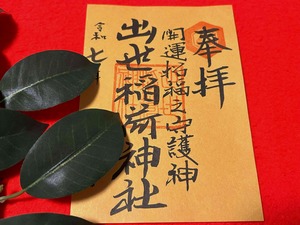 奉拝
開運招福之守護神
出世稲荷神社
令和七